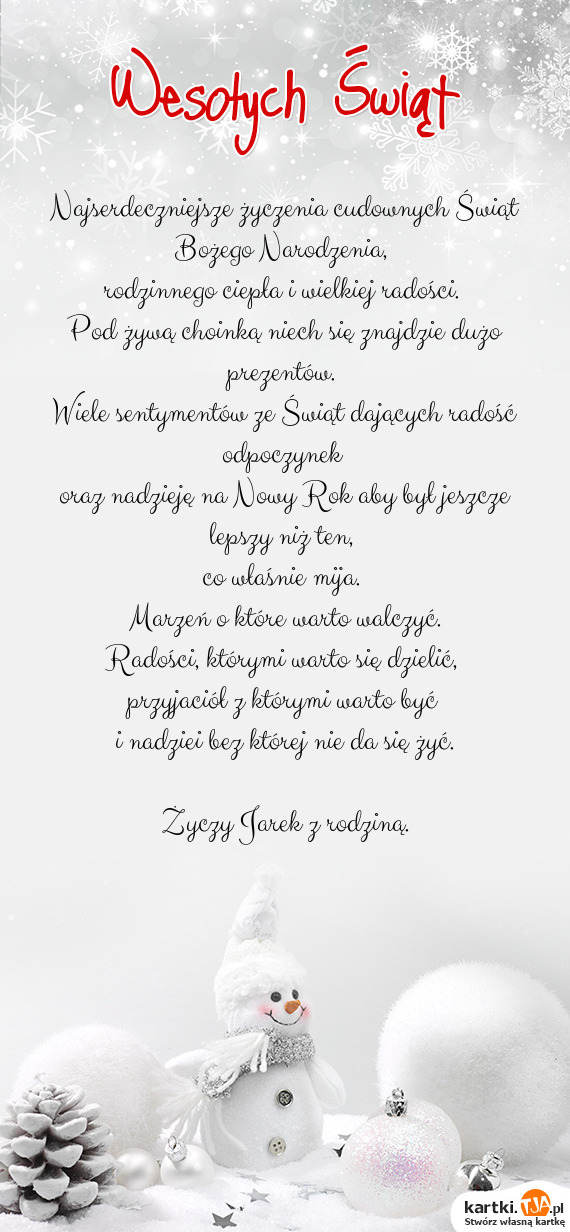 Wesołych Świąt
Najserdeczniejsze życzenia cudownych Świąt
Bożego Narodzenia,
rodzinnego ciepła i wielkiej radości.
Pod żywą choinką niech się znajdzie dużo
prezentów.
Wiele sentymentów ze Świąt dających radość
odpoczynek
oraz nadzieję na Nowy Rok aby był jeszcze
lepszy niż ten,
co właśnie mija.
Marzeń o które warto walczyć.
Radości, którymi warto się dzielić,
przyjaciół z którymi warto być
i nadziei bez której nie da się żyć.
Życzy Jarek z rodziną.
kartki.TJA.pl
Stwórz własną kartkę